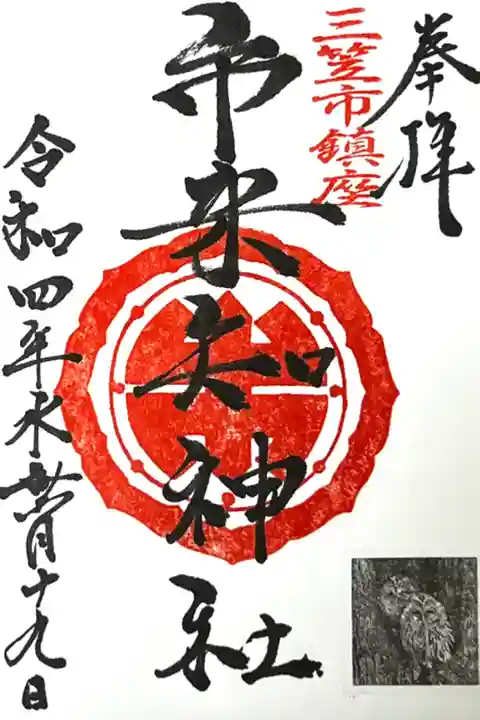 奉拝
三笠市鎮座
市来知神社
令和四年水無月十九日